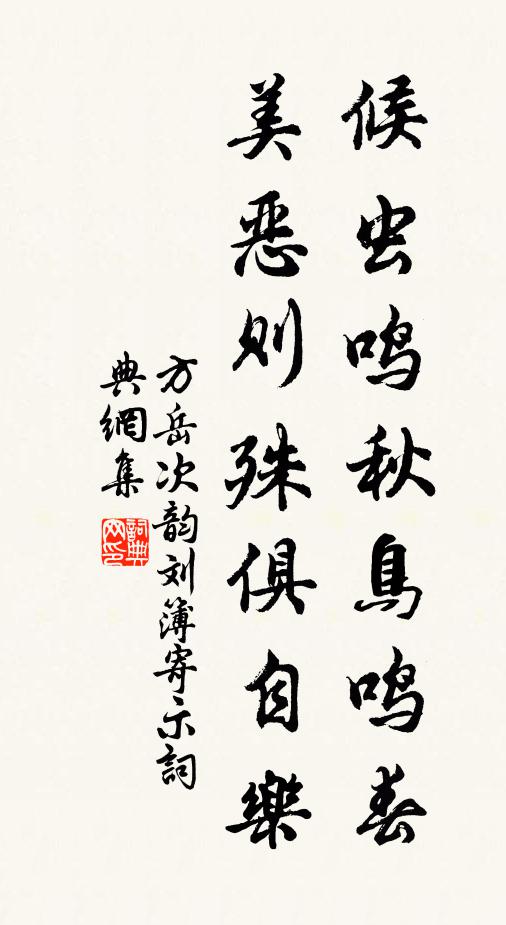 候虫鸣秋鳥鸣春
美惡则殊俱自樂
方岳次韵刘簿寄示詞
典網集
詞典网印